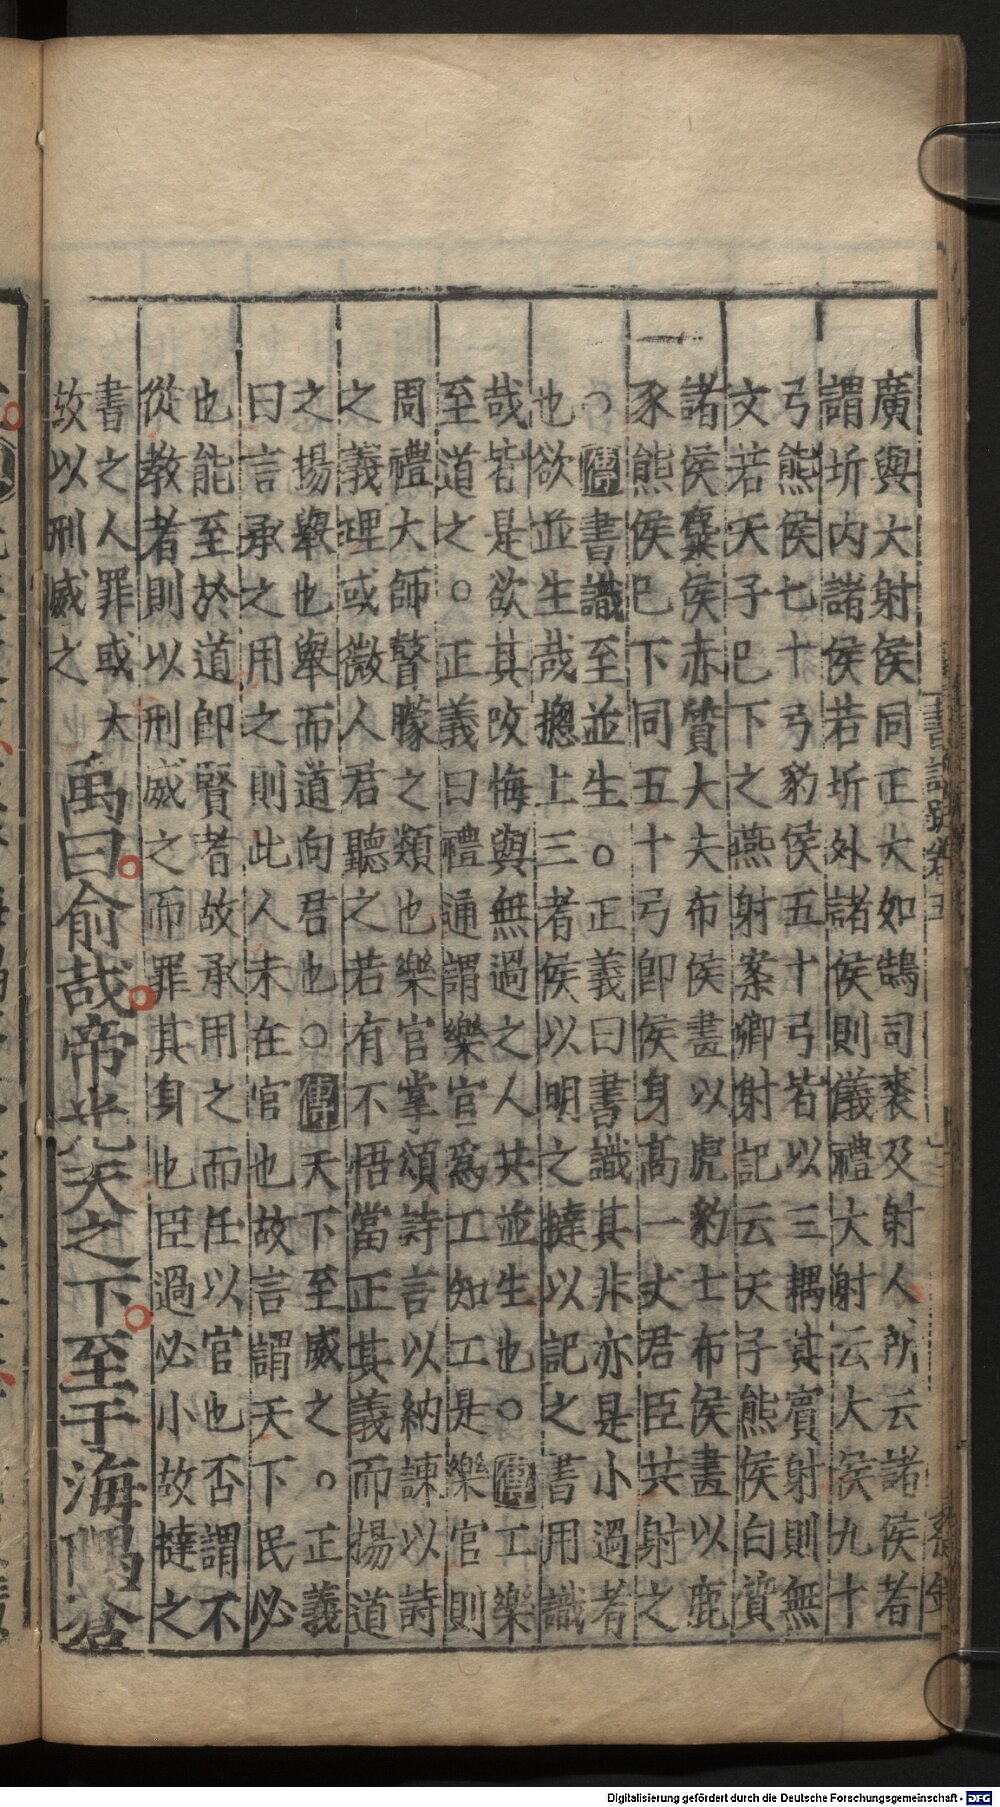 廣與大射侯同正大如鵠司裘及射人所云諸侯者
謂圻内諸侯若圻外諸侯則儀禮大射云大侯九十
弓熊侯七十弓豹侯五十弓皆以三耦其賓射則無
文若天子已下之燕射案鄉射記云天子熊侯白質
諸侯麋侯赤質大夫布侯畫以虎豹士布侯畫以鹿
豕熊侯已下同五十弓即侯身高一丈君臣共射之
○傳書識至並生○正義曰書識其非亦是小過者
也欲並生哉揔上三者侯以明之撻以記之書用識
哉皆是欲其改悔與無過之人共並生也○傳工樂
至道之○正義曰禮通謂樂官爲工知工是樂官則
周禮大師瞽矇之類也樂官掌頌詩言以納諫以詩
之義理或微人君聽之若有不悟當正其義而揚道
之揚舉也舉而道向君也○傳天下至威之○正義
曰言承之用之則此人未在官也故言謂天下民必
也能至於道即賢者故承用之而任以官也否謂不
從教者則以刑威之而罪其身也臣過必小故撻之
書之人罪或大
故以刑威之
禹曰俞哉帝光天之下至于海隅蒼
書註疏卷五
Digitalisierung gefördert durch die Deutsche Forschungsgemeinschaft - DFG